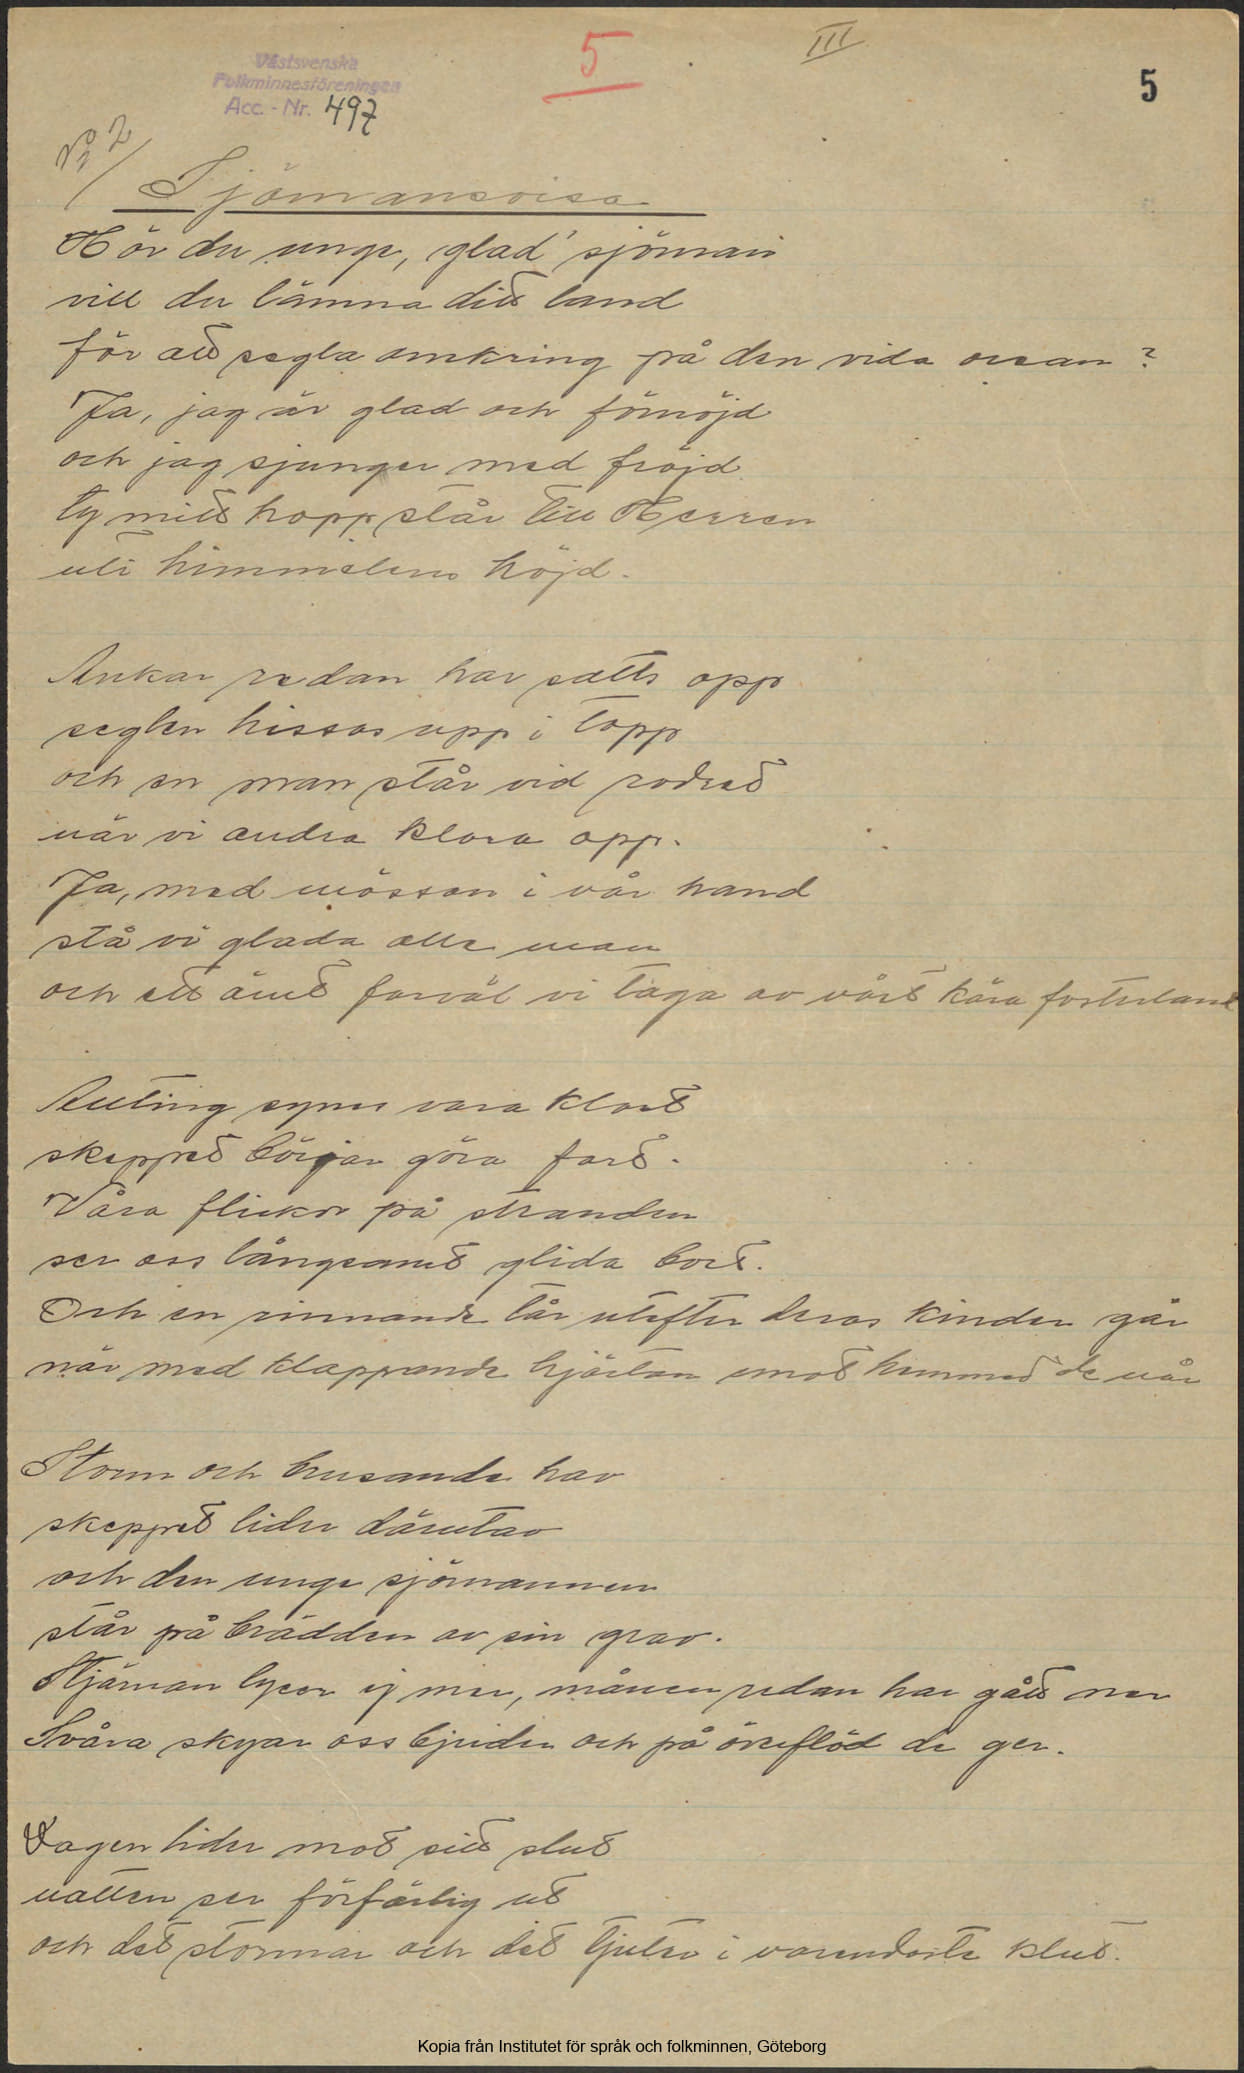 Västsvenska
Folkminnesföreningen
Acc. - Nr. 497
5
III
5
No 2
Sjömansvisa
Hör du unge, glad' sjöman
vill du lämna ditt land
för att segla omkring på den vida ocean?
Ja, jag är glad och förnöjd
och jag sjunger med fröjd
ty mitt hopp står till Herren
uti himmelens höjd.
Ankar redan har satts opp
seglen hissas upp i topp
och en man står vid rodret
när vi andra klara opp.
Ja, med mössan i vår hand
stå vi glada alle man
och ett ömt farväl vi taga av vårt kära fosterland
Allting synes vara klart
skeppet börjar göra fart.
Våra flickor på stranden
ser oss långsamt glida bort.
Och en rinnande tår utefter deras kinder går
när med klappande hjärtan emot hemmed de når
Storm och brusande hav
skeppet lider därutav
och den unge sjömannen
står på brädden av sin grav.
Stjärnan lyser ej mer, månen redan har gått ner
Svåra skyar oss bjuder och på öreflöd de ger.
Dagen lider mot sitt slut
natten ser förfärlig ut
och det stormar och det tjuter i varendaste klut.
Kopia från Institutet för språk och folkminnen, Göteborg